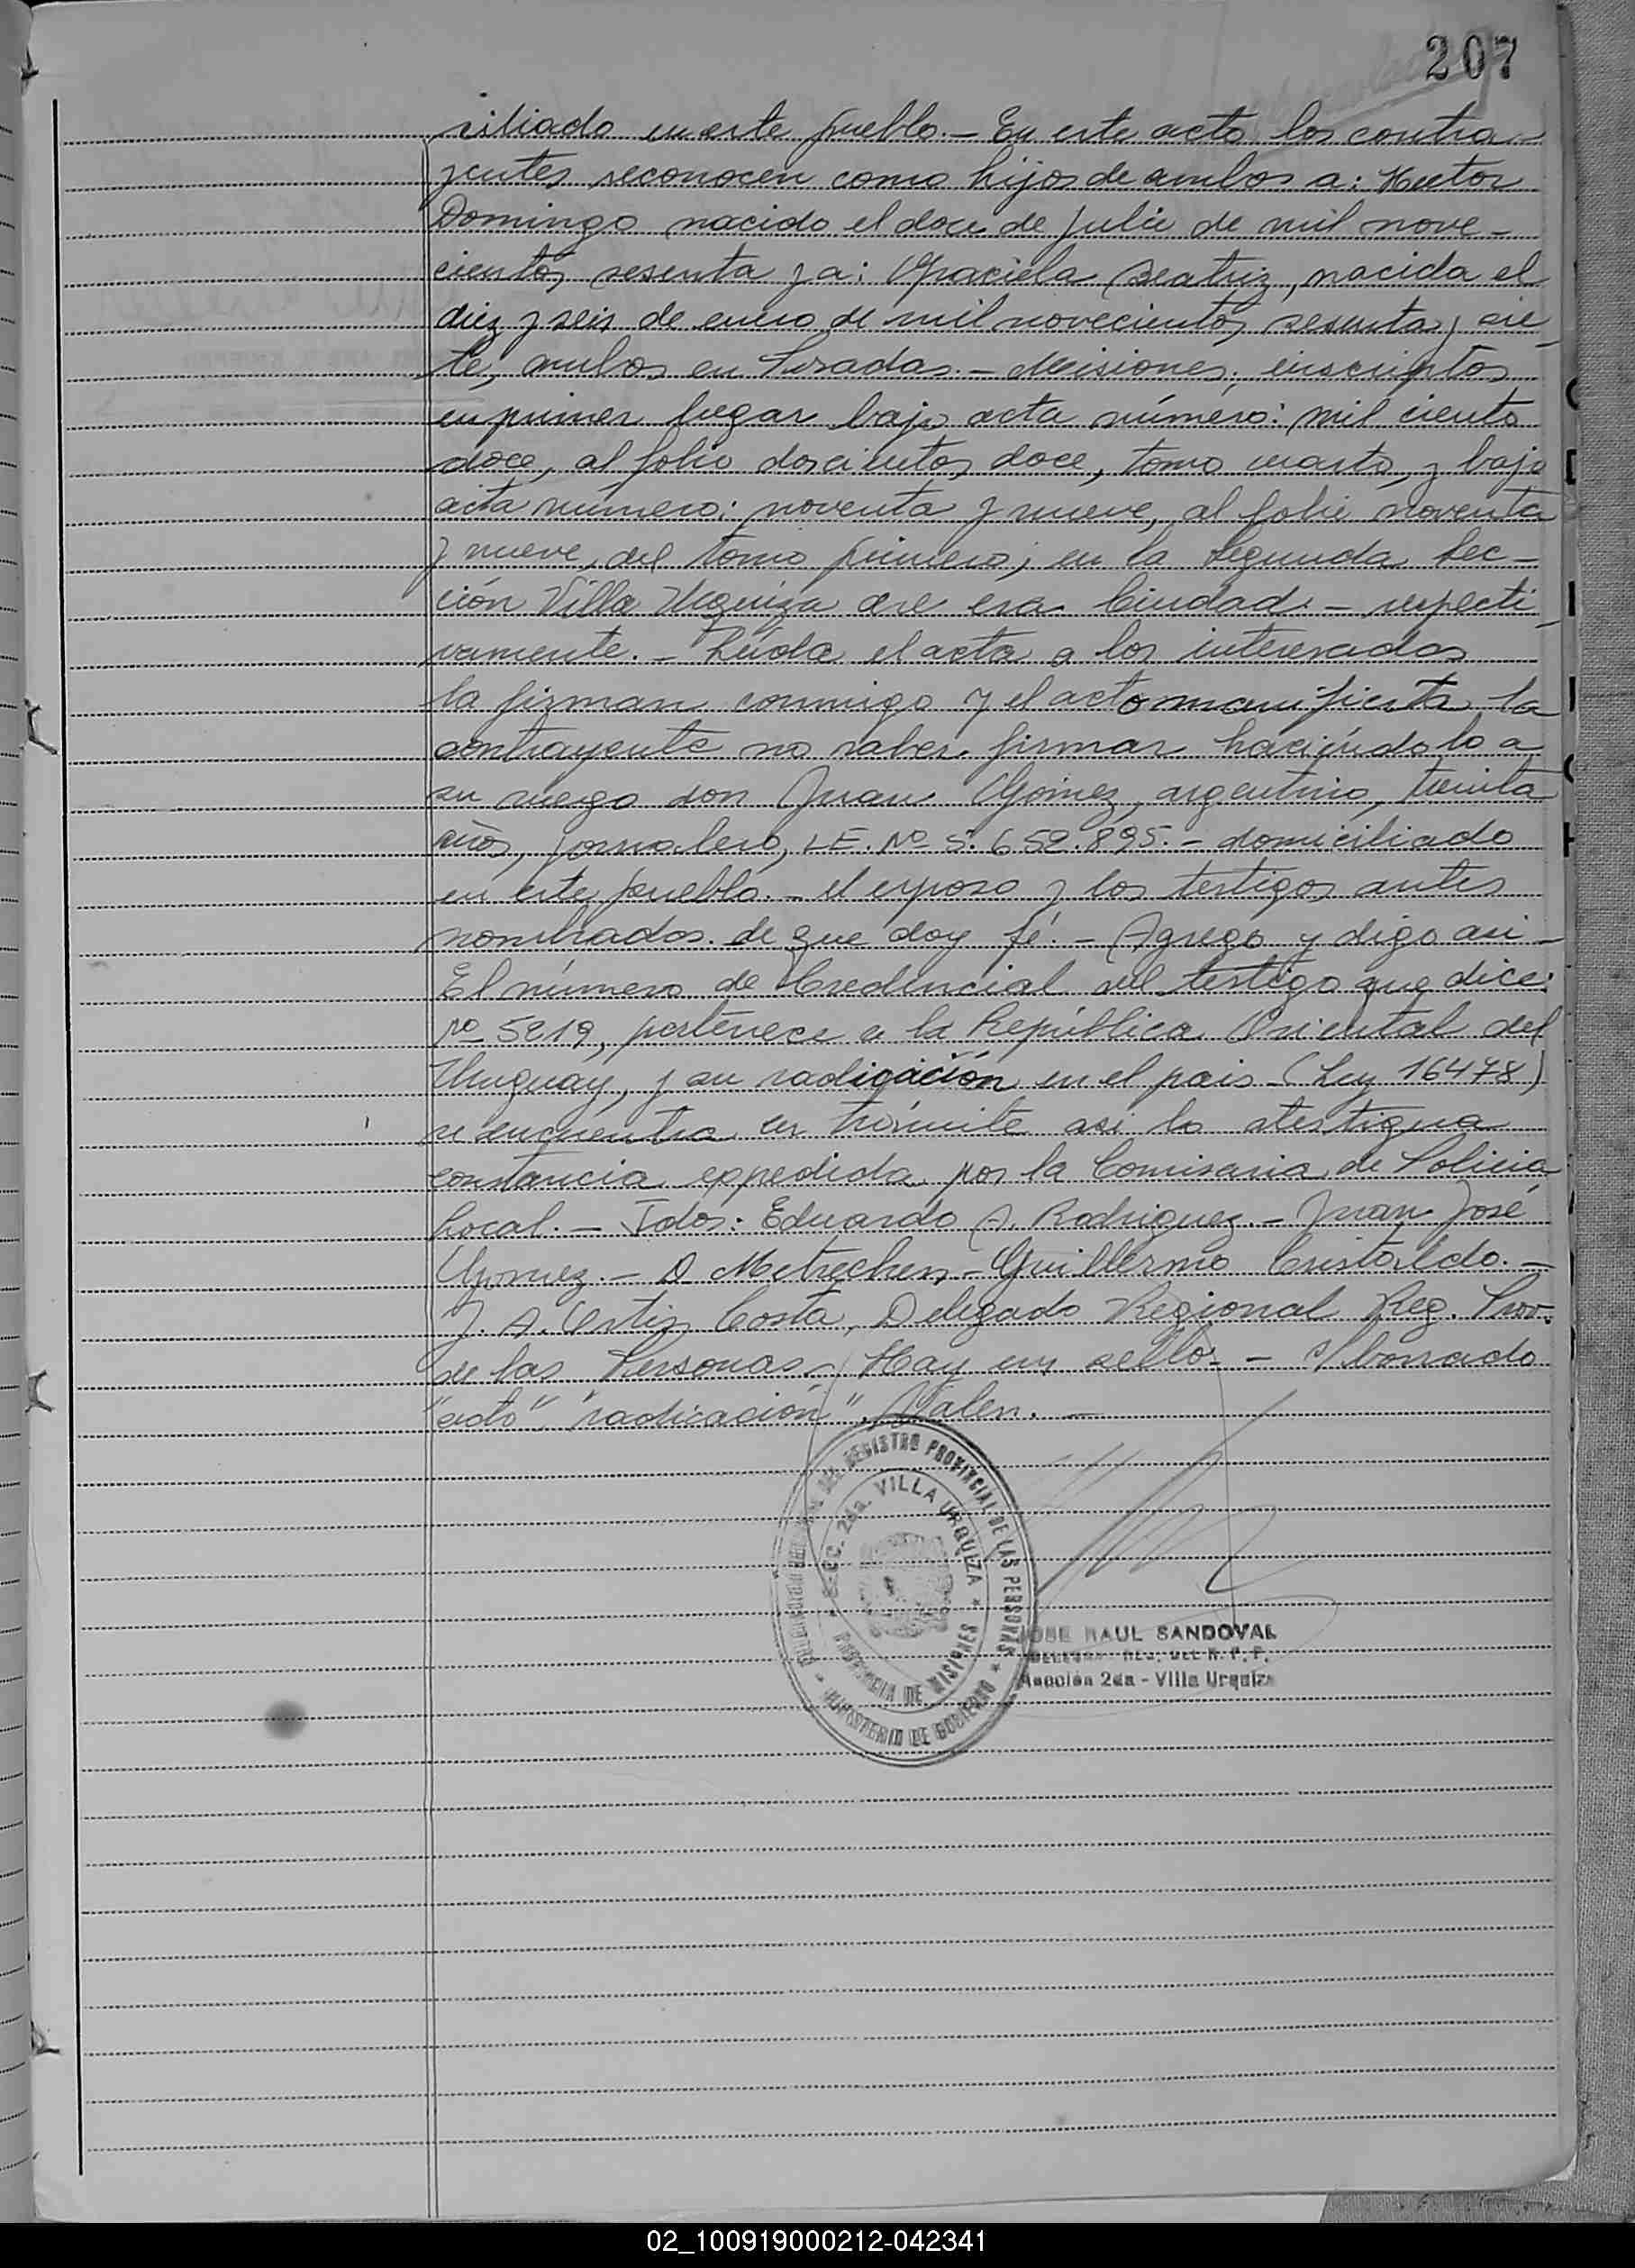 207
ciliado en este pueblo.- En este acto los contra-
yentes reconocen como hijos de ambos a: Hector
Domingo nacido el doce de Julio de mil nove-
cientos sesenta y a: Graciela Beatriz, nacida el
diez y seis de enero de mil novecientos sesenta y sie-
te, ambos en Posadas.- Misiones, inscriptos
en primer lugar bajo acta número: mil ciento
doce, al folio doscientos doce, tomo cuarto, y bajo
acta número: noventa y nueve, al folio noventa
y nueve, del tomo primero; en la Segunda Sec-
ción Villa Urquiza de esa Ciudad.- respecti-
vamente.- Leída el acta a los interesados
la firman conmigo y el acto manifiesta la
contrayente no saber firmar haciéndolo a
su ruego don Juan Gómez, argentino, treinta
años, jornalero, LE. Nº 5.652.895.- domiciliado
en este pueblo.- el esposo y los testigos antes
nombrados de que doy fé.- Agrego y digo asi-
El número de Credencial del testigo que dice:
Nº 5219, pertenece a la República Oriental del
Uruguay, y su radicación en el pais (Ley 16478)
se encuentra en trámite asi lo atestigua
constancia expedida por la Comisaria de Policia
Local.- Fdos: Eduardo A. Rodriguez.- Juan José
Gomez.- D. Metrechen- Guillermo Cristaldo.-
J. A. Ortiz Costa, Delegado Regional Reg. Prov.
de las Personas.- Hay un sello.- S/borrado
"acto" "radicación". Valen.-
DEL REGISTRO PROVINCIAL DE LAS PERSONAS
SECC. 2da. VILLA URQUIZA
PROVINCIA DE MISIONES
MINISTERIO DE GOBIERNO
JOSE RAUL SANDOVAL
DELEGADO REG. DEL R. P. P.
Sección 2da - Villa Urquiza
02_100919000212-042341